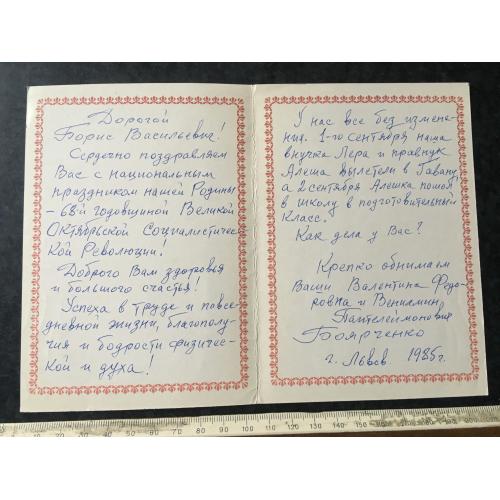 Дорогой
Борис Васильевич!
Сердечно поздравляем
Вас с национальным
праздником нашей Родины
- 68й годовщиной Великой
Октябрьской Социалистичес
кой Революции!
Доброго Вам здоровья
и большого счастья!
Успеха в труде и повсе-
дневной жизни, благополу-
чия и бодрости физичес-
кой и духа!
У нас все без измене-
ния. 1-го сентября наша
внучка Лера и правнук
Алеша вылетели в Гавану,
а 2 сентября Алешка пошел
в школу в подготовительный
класс.
Как дела у Вас?
Крепко обнимаем
Ваши Валентина Федо-
ровна и Вениамин
Пантелеймонович
Боярченко
г. Львов 1985г.